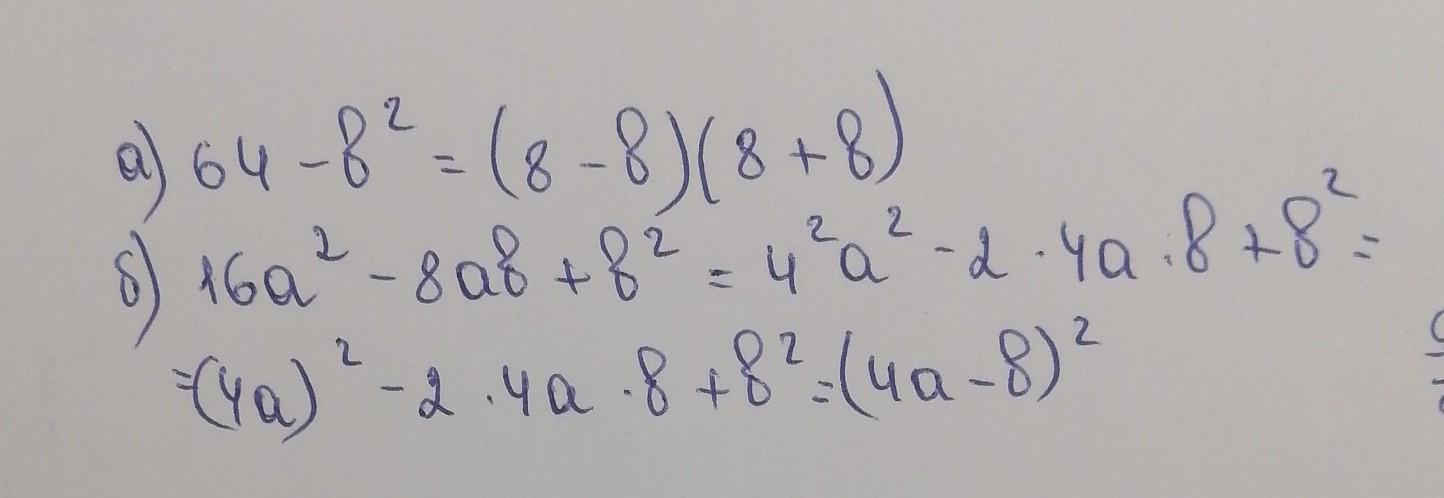 а) 64 - в² = (8 - в)(8 + в)
б) 16а² - 8ав + в² = 4²а² - 2 · 4а · в + в² =
=(4а)² - 2 · 4а · в + в² = (4а - в)²